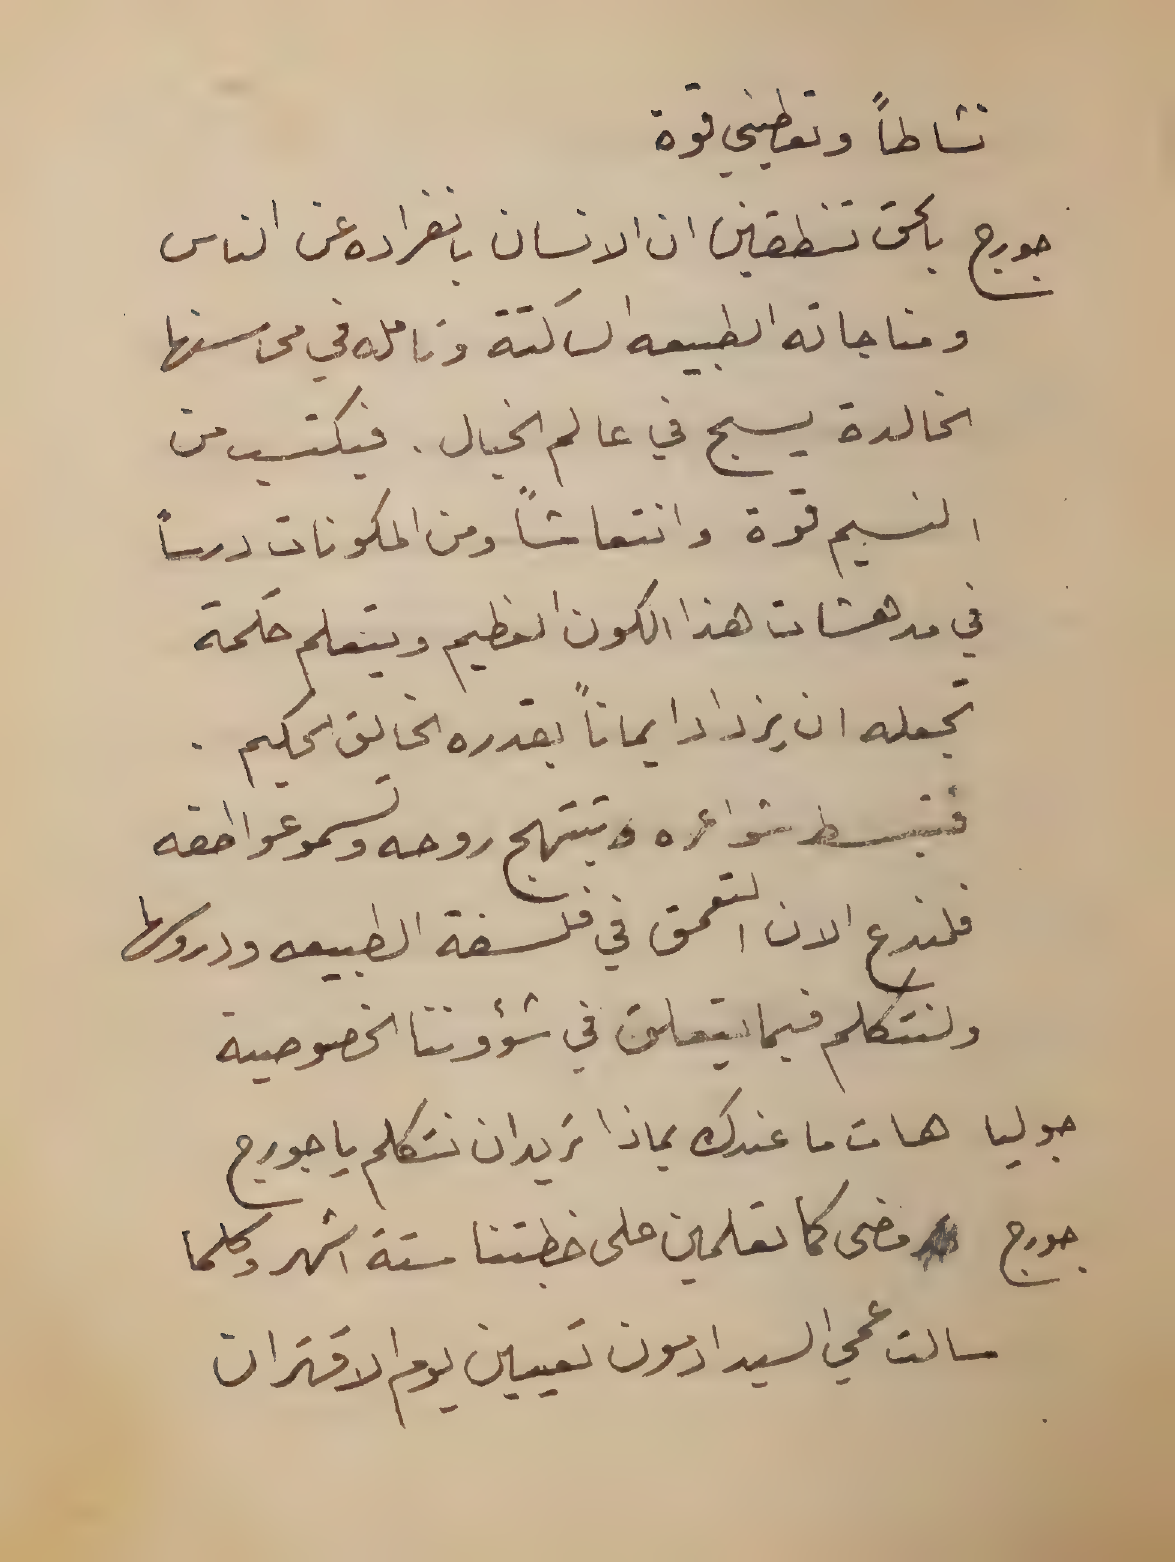 نشاطاً وتعطيني قوة
جورج بالحق تنطقين ان الانسان بانفراده عن الناس
ومناجاته الطبيعه الساكتة وتأمله في محاسنها
الخالدة يسبح في عالم الخيال . فيكتسب من
النسيم قوة وانتعاشاً ومن المكونات درساً
في مدهشات هذا الكون العظيم ويتعلم حكمة
تجعله ان يزداد ايماناً بقدره الخالق الحكيم .
فتبسط شواعره وتبتهج روحه وتسمو عواطفه
فلندع الان التعمق في فلسفة الطبيعه ودروسها
ولنتكلم فيما يتعلق في شؤوننا الخصوصية
جوليا هات ما عندك بماذا تريد ان نتكلم يا جورج
جورج مضى كما تعلمين على خطبتنا ستة اشهر وكلما
سالت عمي السيد ادمون تعيين يوم الاقتران